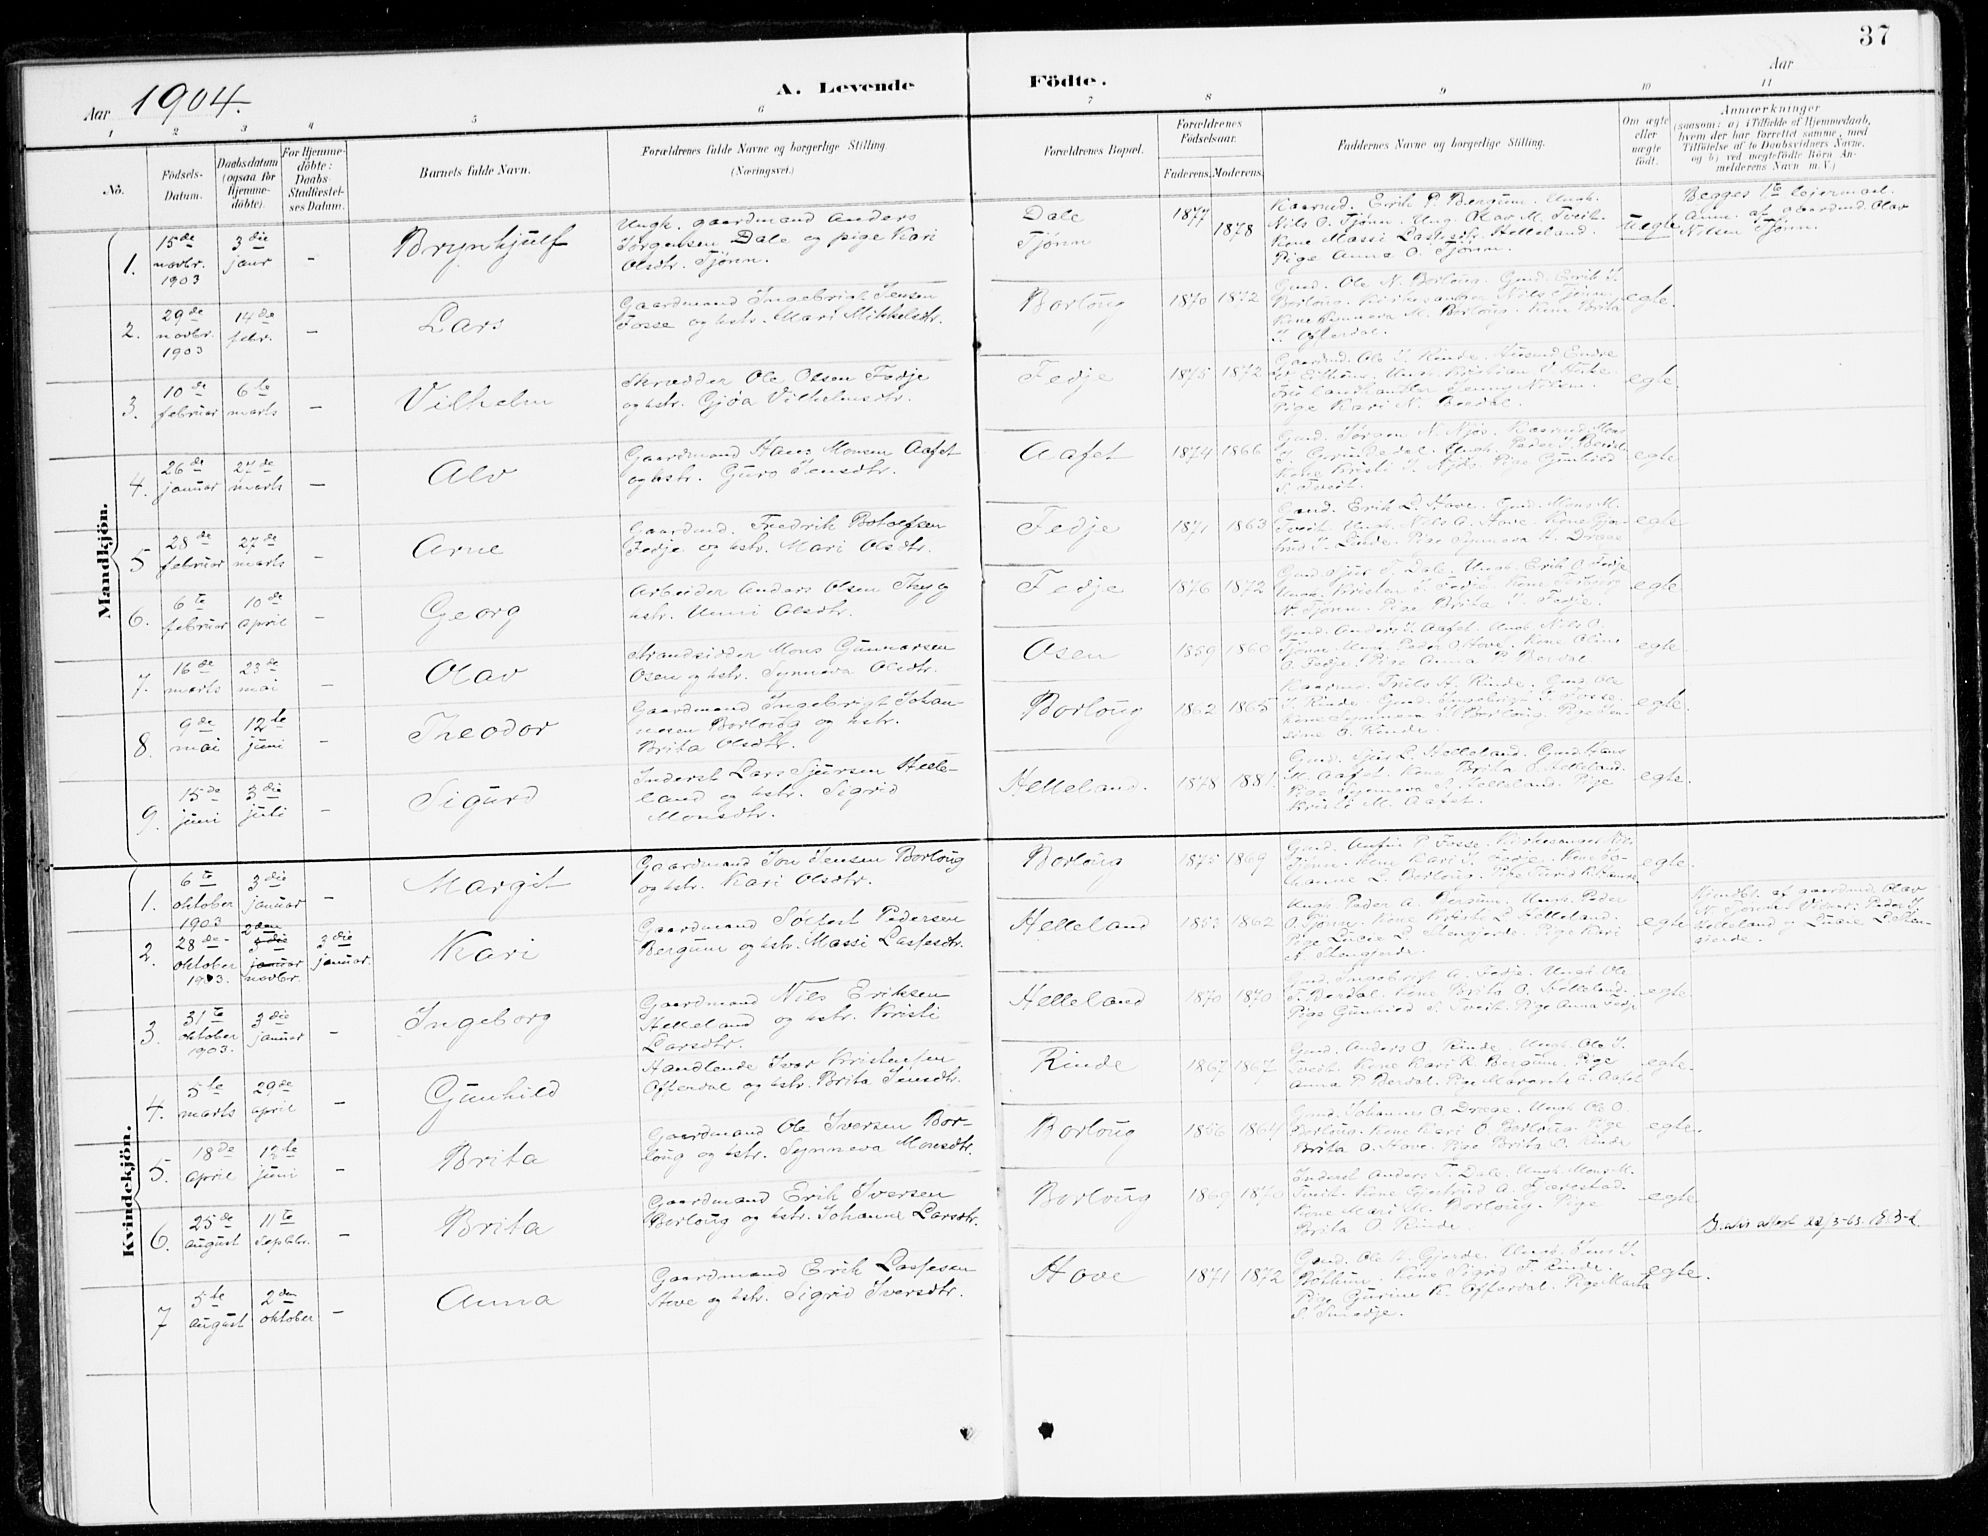 37
Aar 1904.
A. Levende Födte.
Aar
1 2 3 4 5 6 7 8 9 10 11
No.
Födsels-Datum.
Daabsdatum (ogsaa for Hjemme-döbte).
For Hjemme-döbte: Daabs-Stadfæstel-ses Datum.
Barnets fulde Navn.
Forældrenes fulde Navne og borgerlige Stilling. (Næringsvei.)
Forældrenes Bopæl.
Forældrenes Födselsaar.
Faderens. Moderens.
Faddernes Navne og borgerlige Stilling.
Om ægte eller uægte födt.
Anmærkninger (saasom: a) i Tilfælde af Hjemmedaab, hvem der har forrettet samme, med Tilföielse af to Daabsvidners Navne, og b) ved uægtefödte Börn An-melderens Navn m. V.)
Mandkjön.
1. 15de novbr. 1903 3die janr – Brynhjulf
Ungk. gaardmand Anders
Jørgensen Dale og pige Kari
Olsdtr. Tjønn.
Dale Tjønn 1877 1878
Nils O. Tjønn. Ung. Olav M. Tveit.
Kone Massi Lassesdtr. Helleland.
Pige Anna O. Tjønn.
Uægte
Begges 1te leiermaal.
Anm. af gaardmd. Olav
Nilsen Tjønn.
2. 29de novbr. 1903 14de febr. – Lars
Gaardmand Ingebrigt Jensen
Fosse og hstr. Mari Mikkelsdtr.
Borloug 1870 1872
Gmd. Ole N. Borloug. Gmd. Eirik I.
Borloug. Kirkesanger Nils Tjønn.
Kone Synneva M. Borloug. Kone Brita
I. Ofterdal.
egte.
3. 10de februar 6te marts – Vilhelm
Skrædder Ole Olsen Fedje
og hstr. Gjøa Vilhelmsdtr.
Fedje 1875 1872
Pige Kari N. Berdal.
egte.
4. 26de januar 27de marts – Alv
Gaardmand Hans Monsen Aafet
og hstr. Guro Jensdtr.
Aafet 1874 1866
Gmd. Jørgen N. Njøs.
Kone Kristi I. Njøs. Pige Gunhild
S. Tveit.
egte.
5 28de februar 27de marts – Arne
Gaardmd. Fredrik Botolfsen
Fedje og hstr. Mari Olsdtr.
Fedje 1871 1863
Gmd. Erik L. Hove. Gmd. Mons M.
Tveit. Ungk. Nils A. Hove. Kone Gjør-
trud I. Linde. Pige Synneva H. Dræge
egte
6. 6te februar 10de april – Georg
Arbeider Anders Olsen Thyg
hstr. Unni Olsdtr.
Fedje 1876 1872
Gmd. Sjur T. Dale. Ungk. Erik O. Fedje
N. Tjønn. Pige Brita I. Fedje.
egte.
7. 16de marts 23de mai – Olav
Strandsidder Mons Gunnarsen
Osen og hstr. Synneva Olsdtr.
Osen 1859 1860
Gmd. Anders I. Aafet. Ungk. Nils O.
Tjønn. Ungk. Peder O. Hove. Kone Oline
O. Fedje. Pige Anna P. Berdal
egte.
8. 9de mai 12te juni – Theodor
Gaardmand Ingebrigt Johan-
nesen Borloug og hstr.
Brita Olsdtr.
Borloug 1862 1865
Kaarmd. Truls H. Rinde. Gmd. Ole
I. Rinde. Gmd. Ingebrigt I. Fosse.
Kone Synneva I. Borloug. Pige Jen-
sine O. Rinde.
egte.
9. 15de juni 3die juli – Sigurd
Inderst Lars Sjursen Helle-
land og hstr. Sigrid
Monsdtr.
Helleland. 1878 1881.
Gmd. Sjur L. Helleland. Gmd. Hans
M. Aafet. Kone Brita O. Helleland.
Pige Synneva S. Helleland. Pige
Kristi M. Aafet.
egte.
Kvindekjön.
1. 6te oktober 1903 3die januar – Margit
Gaardmand Jon Jensen Borloug
og hstr. Kari Olsdtr.
Borloug 1875 1869
Gmd. Anfin P. Fosse. Kirkesanger Nils
Tjønn. Kone Kari I. Fedje. Kone Jo-
hanne L. Borloug.
egte.
2. 28de oktober 1903. 2den 3die januar novbr. 3die januar. Kari
Gaardmand Solfest Pedersen
Bergum og hstr. Massi Lassesdtr.
Helleland 1853 1862
Ungk. Peder A. Bergum. Ungk. Peder
O. Tjønn. Kone Kristi L. Helleland.
Pige Lucie L. Stengjerde. Pige Kari
N. Stengjerde.
egte
Hjmdbt. af gaardmd. Olav
N. Tjønn. Vidner: Peder I.
Helleland og Lucie L. Sten-
gjerde.
3. 31te oktober 1903. 3die januar – Ingeborg
Gaardmand Nils Eriksen
Helleland og hstr. Kristi
Larsdtr.
Helleland 1870 1870
Gmd. Ingebrigt A. Fedje. Ungk. Ole
T. Berdal. Kone Brita O. Helleland.
Pige Gunhild S. Tveit. Pige Anna Fedje
egte.
4. 5te marts 29de april – Gunhild
Handlende Ivar Kristensen
Offerdal og hstr. Brita Jensdtr.
Rinde 1867 1867
Gmd. Anders O. Rinde. Ungk. Ole I.
Tveit. Kone Kari R. Bergum. Pige
Anna P. Berdal. Pige Margrete A. Aafet
egte.
5. 18de april 12te juni – Brita
Gaardmand Ole Iversen Bor-
loug og hstr. Synneva Monsdtr.
Borloug 1856 1864
Gmd. Johannes O. Dræge. Ungk. Ole O
Borloug. Kone Kari O. Borloug. Pige
Brita O. Hove. Pige Brita O. Rinde
egte.
6. 25de august 11te septbr. – Brita
Gaardmand Erik Iversen
Borloug og hstr. Johanne Larsdtr.
Borloug 1869 1870
Inderst Anders T. Dale. Ungk. Mons M.
Tveit. Kone Gjertrud A. Fjærestad.
Kone Mari M. Borloug. Pige
Brita O. Rinde.
egte
7 5te august 2den oktober – Anna
Gaardmand Erik Lassesen
Hove og hstr. Sigrid Iversdtr.
Hove 1871 1872
Gmd. Ole A. Gjerde. Ungk. Jens I.
Bottum. Kone Sigrid T. Rinde.
Pige Gurine K. Offerdal. Pige Marta
egte.